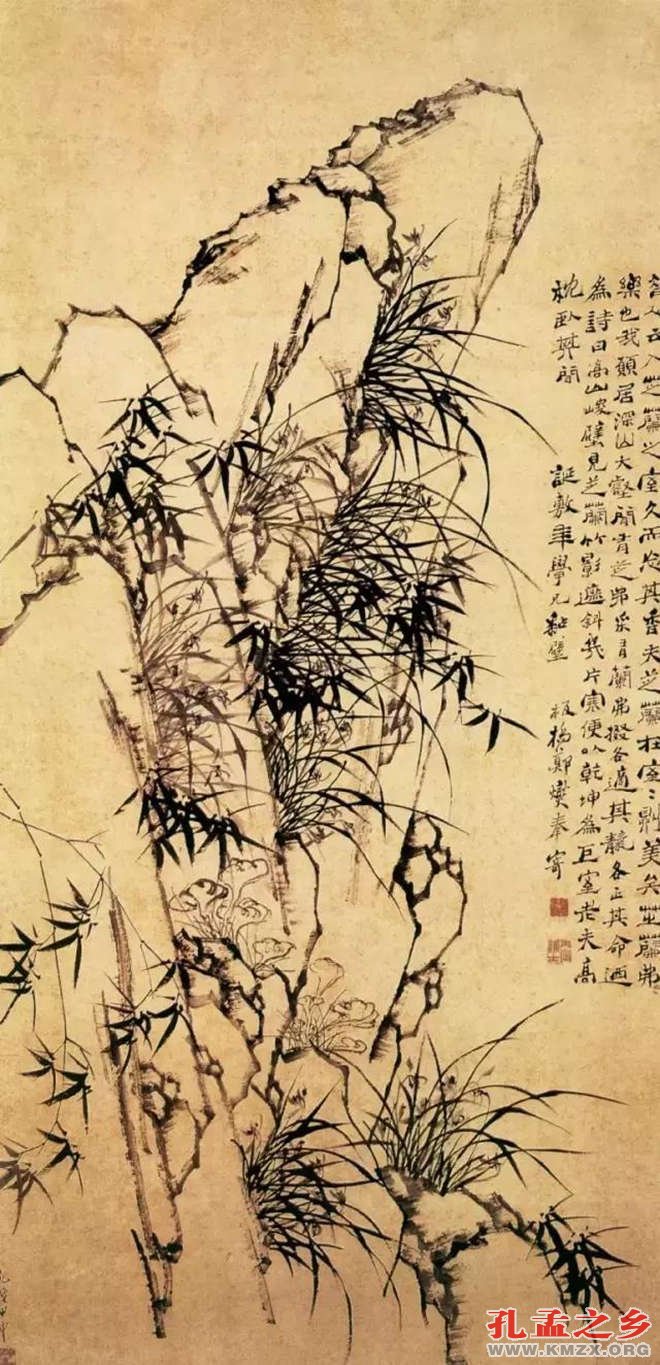 昔人云入芝蘭之室久而忘其香夫芝蘭在室室則美矣芝蘭弗
樂也我願居深山大壑間有芝弗采有蘭弗掇各適其天各正其命迺
為詩曰高山峻壁見芝蘭竹影遮斜幾片寒便以乾坤為巨室老夫高
枕臥其間
誕敷年學兄 板橋鄭燮奉寄
孔孟之乡
WWW.KMZX.ORG